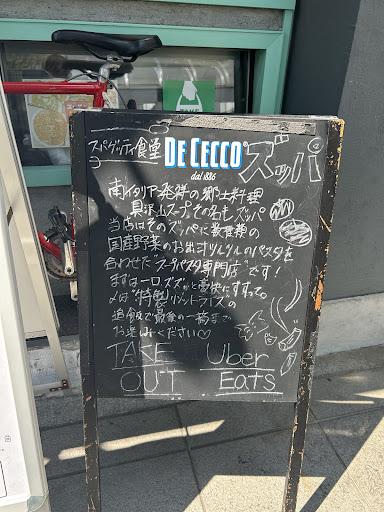 スパゲッティ食堂 DE CECCO ズッパ
dal 1886
南イタリア発祥の郷土料理
具沢山スープ。その名もズッパ
当店はそのズッパに数種類の
国産野菜のお出汁とツルツルのパスタを
合わせた"スープパスタ専門店"です!
まずは一口ズズッと豪快にすすって。
〆は"特製"リゾットライスの
追飯で最後の一滴まで
お楽しみください♡
TAKE Uber
OUT Eats